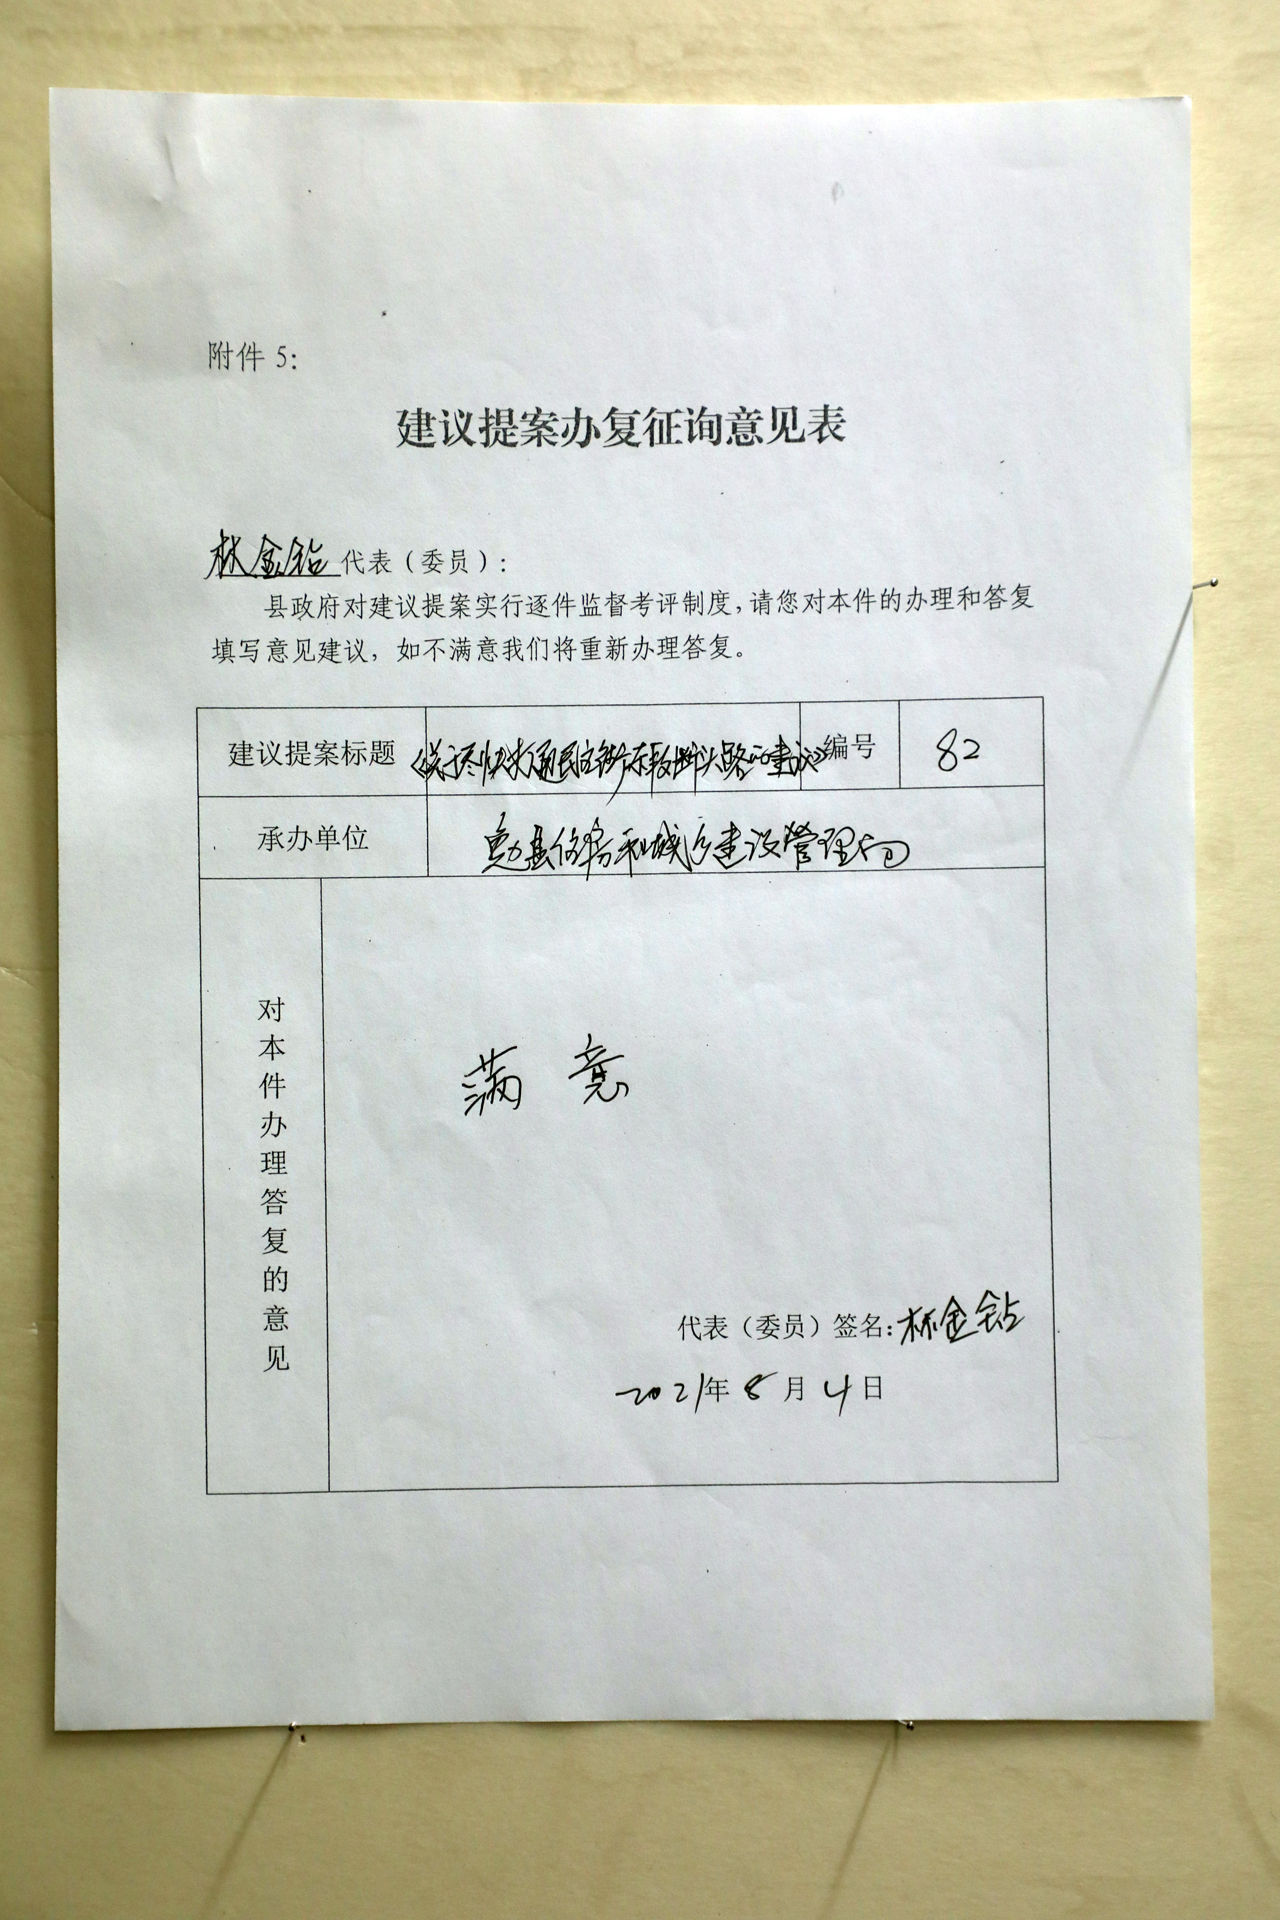 附件 5：
建议提案办复征询意见表
林金钻代表（委员）：
县政府对建议提案实行逐件监督考评制度，请您对本件的办理和答复
填写意见建议，如不满意我们将重新办理答复。
建议提案标题 《关于尽快打通民主街东段断头路的建议》 编号 82
承办单位 勐县住房和城乡建设管理局
对本件办理答复的意见
满意
代表（委员）签名：林金钻
2021年8月4日